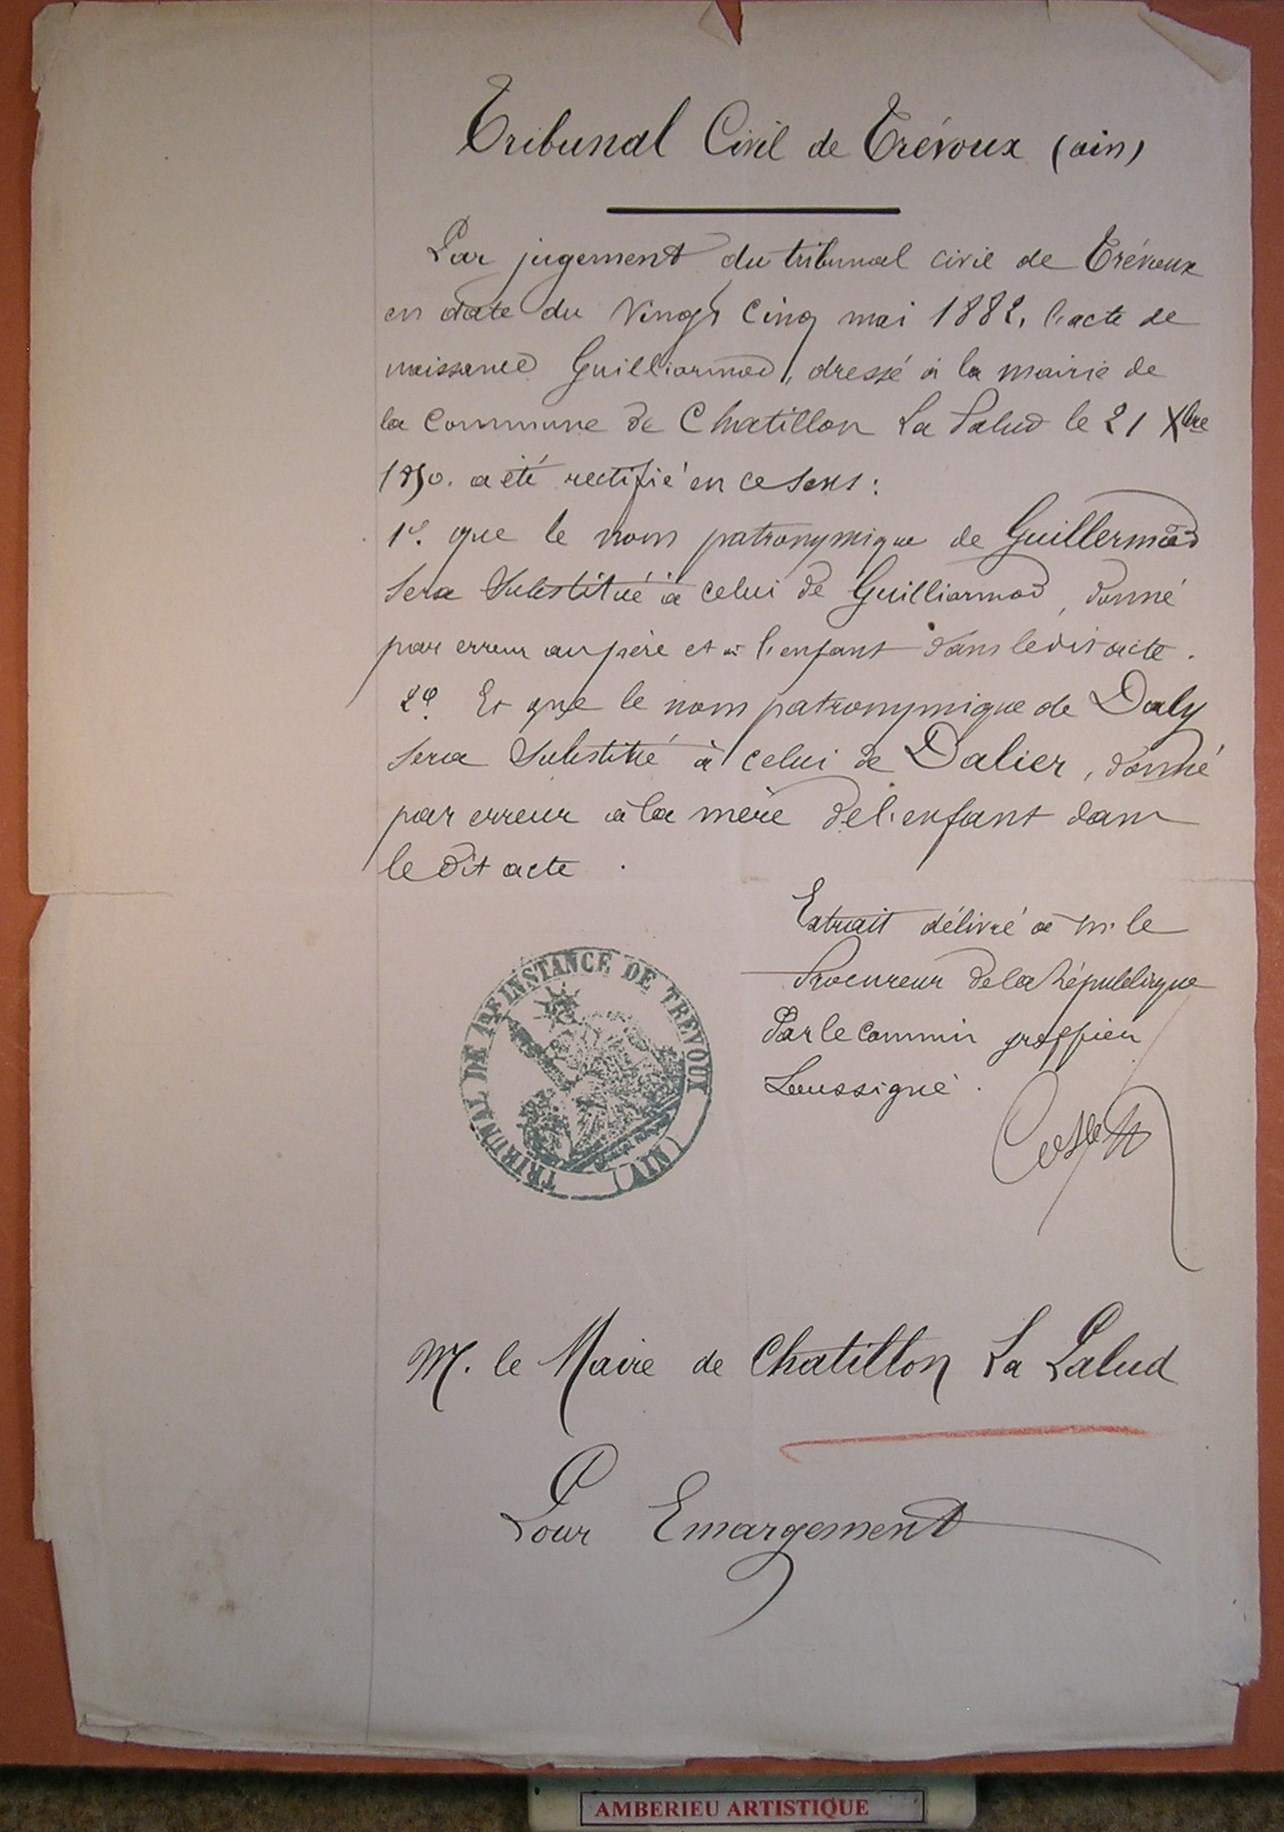 Tribunal Civil de Trévoux (ain)
Par jugement du tribunal civil de Trévoux
en date du Vingt Cinq mai 1882, l'acte de
naissance Guilliarmod, dressé à la mairie de
la Commune de Chatillon La Palud le 21 Xbre
1850. a été rectifié en ce sens :
1º. que le nom patronymique de Guillermod
sera Substitué à celui de Guilliarmod, donné
par erreur au père et à l'enfant dans le dit acte.
2º. Et que le nom patronymique de Daly
sera Substitué à celui de Dalier, donné
par erreur à la mère de l'enfant dans
le dit acte.
Extrait délivré à M. le
Procureur de la République
Par le commis greffier
Soussigné.
TRIBUNAL DE 1RE INSTANCE DE TREVOUX (AIN)
M. le Maire de Chatillon La Palud
Pour Emargement
AMBERIEU ARTISTIQUE